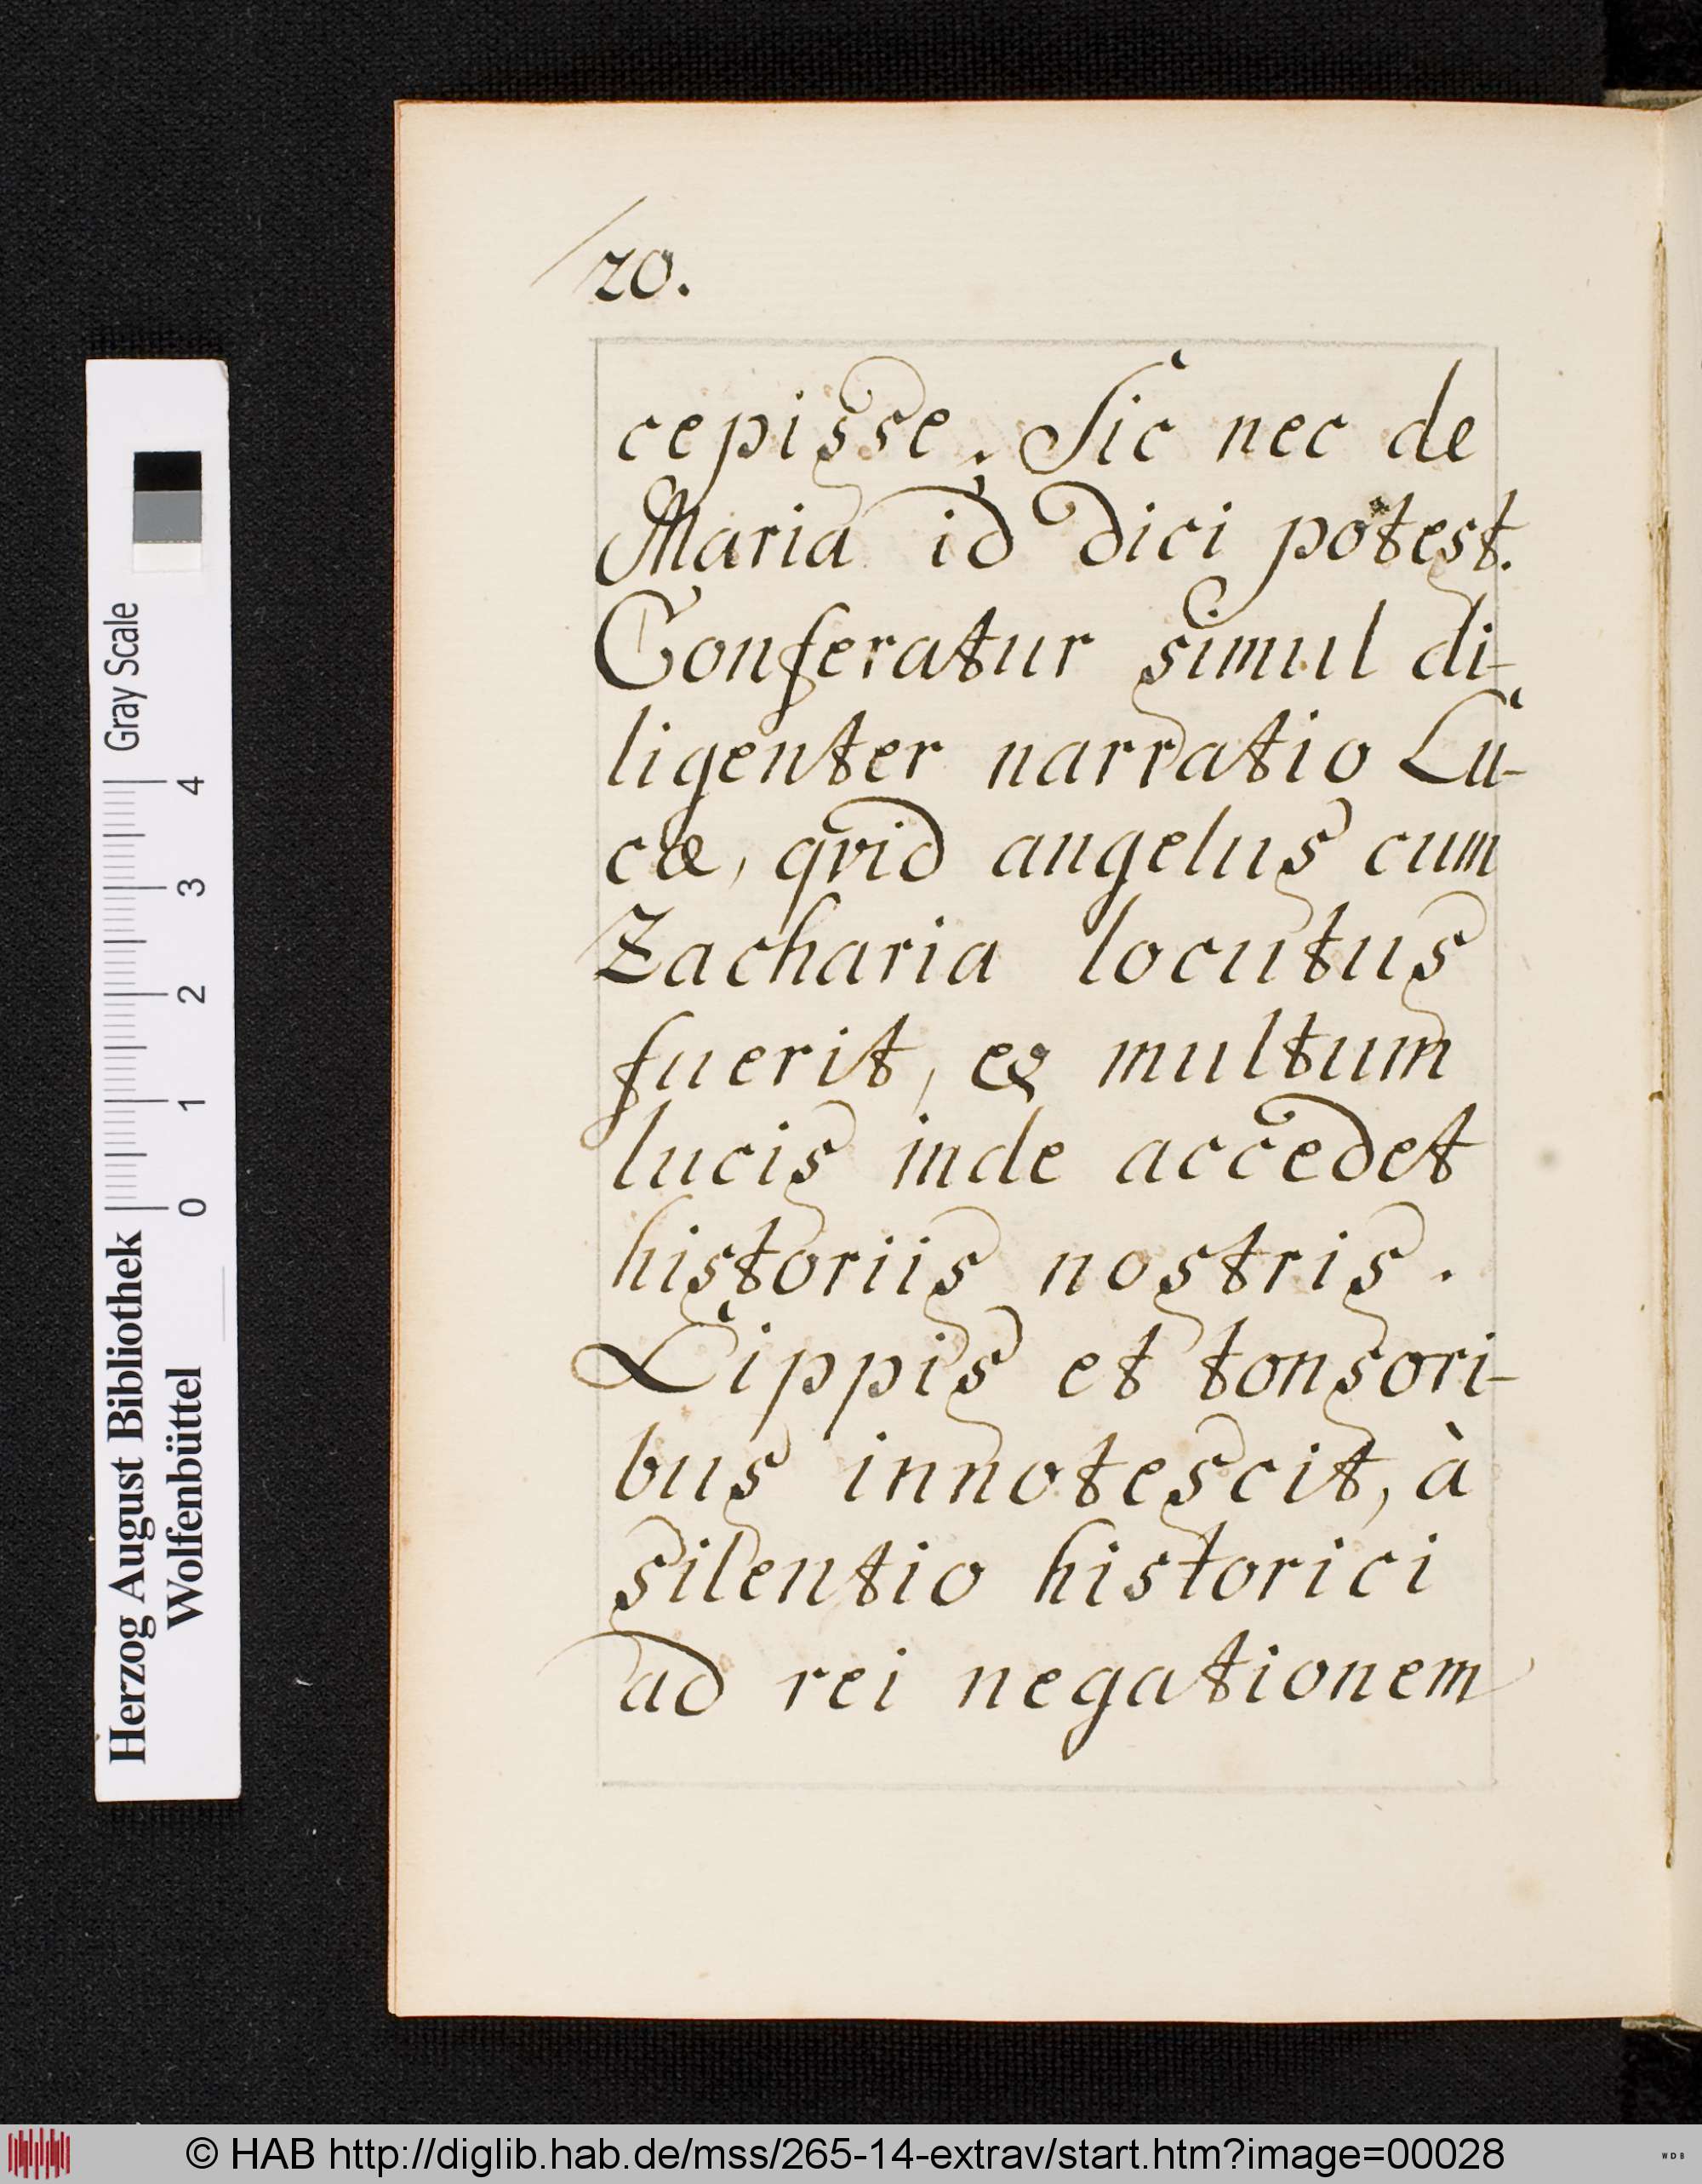 20.
cepisse. Sic nec de
Maria id dici potest.
Conferatur simul di-
ligenter narratio Lu-
cæ, qvid angelus cum
Zacharia locutus
fuerit, & multum
lucis inde accedet
historiis nostris.
Lippis et tonsori-
bus innotescit, à
silentio historici
ad rei negationem
Herzog August Bibliothek
Wolfenbüttel
0 1 2 3 4
Gray Scale
© HAB http://diglib.hab.de/mss/265-14-extrav/start.htm?image=00028
WDB